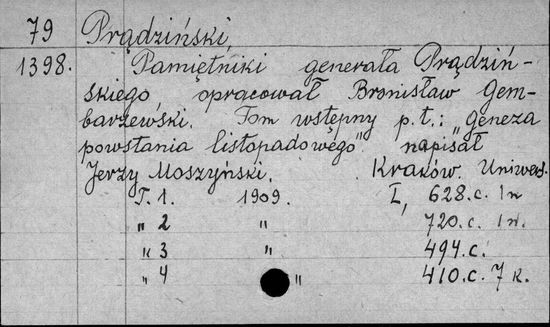 79 Prądziński,
1398. Pamiętniki generała Prądziń-
skiego opracował Bronisław Gem-
barzewski. Tom wstępny p.t.: „Geneza
powstania listopadowego" napisał
Jerzy Moszyński. Kraków. Uniwers.
T. 1. 1909. I, 628.c. 1 n
„ 2 „ 720.c. 1 n.
„ 3 „ 494.c.
„ 4 „ 410.c. 7 k.